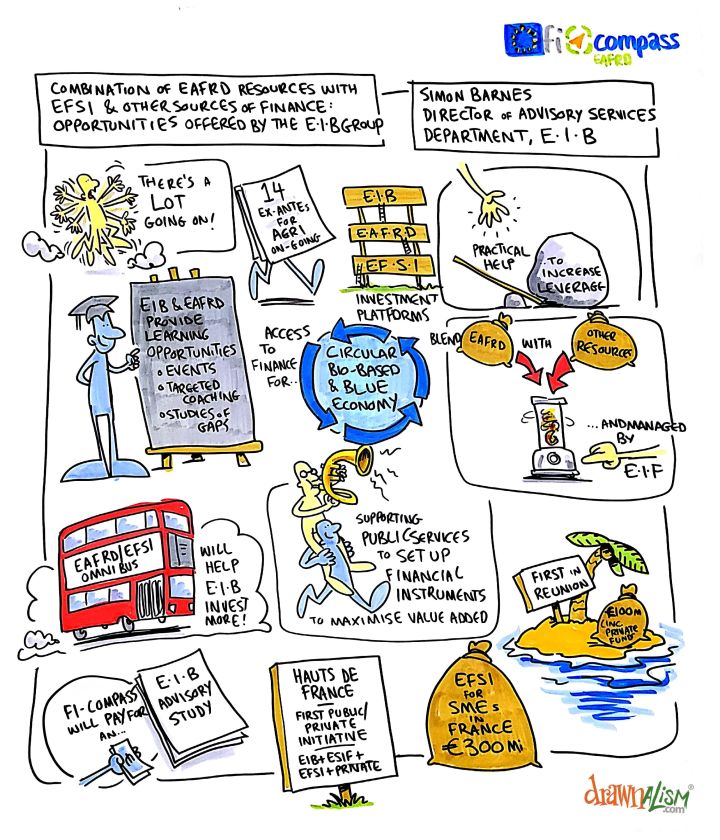 fi compass
EAFRD
COMBINATION OF EAFRD RESOURCES WITH
EFSI & OTHER SOURCES OF FINANCE:
OPPORTUNITIES OFFERED BY THE E·I·B GROUP
SIMON BARNES
DIRECTOR OF ADVISORY SERVICES
DEPARTMENT, E·I·B
THERE'S A
LOT
GOING ON!
14
EX-ANTES
FOR
AGRI
ON-GOING
E·I·B
E·A·F·R·D
E·F·S·I
INVESTMENT
PLATFORMS
PRACTICAL
HELP
TO
INCREASE
LEVERAGE
EIB & EAFRD
PROVIDE
LEARNING
OPPORTUNITIES
EVENTS
TARGETED
COACHING
STUDIES OF
GAPS
ACCESS
TO
FINANCE
FOR..
CIRCULAR
BIO-BASED
& BLUE
ECONOMY
BLEND
EAFRD
WITH
OTHER
RESOURCES
...AND MANAGED
BY
E·I·F
EAFRD/EFSI
OMNIBUS
WILL
HELP
E·I·B
INVEST
MORE!
SUPPORTING
PUBLIC SERVICES
TO SET UP
FINANCIAL
INSTRUMENTS
TO MAXIMISE VALUE ADDED
FIRST IN
REUNION
€100M
(INC. PRIVATE
FUND
FI-COMPASS
WILL PAY FOR
AN...
E·I·B
ADVISORY
STUDY
HAUTS DE
FRANCE
FIRST PUBLIC/
PRIVATE
INITIATIVE
EIB+ESIF+
EFSI+PRIVATE
EFSI
FOR
SMEs
IN
FRANCE
€300Mi
drawnalism®
.com